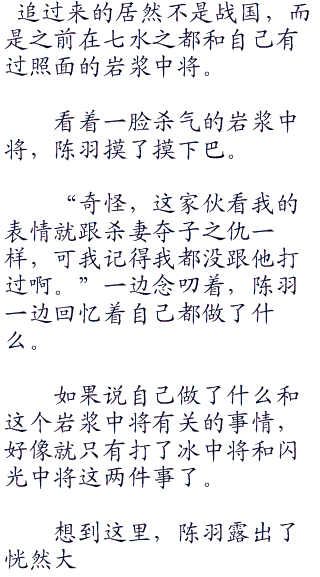 追过来的居然不是战国，而
是之前在七水之都和自己有
过照面的岩浆中将。
看着一脸杀气的岩浆中
将，陈羽摸了摸下巴。
“奇怪，这家伙看我的
表情就跟杀妻夺子之仇一
样，可我记得我都没跟他打
过啊。”一边念叨着，陈羽
一边回忆着自己都做了什
么。
如果说自己做了什么和
这个岩浆中将有关的事情，
好像就只有打了冰中将和闪
光中将这两件事了。
想到这里，陈羽露出了
恍然大